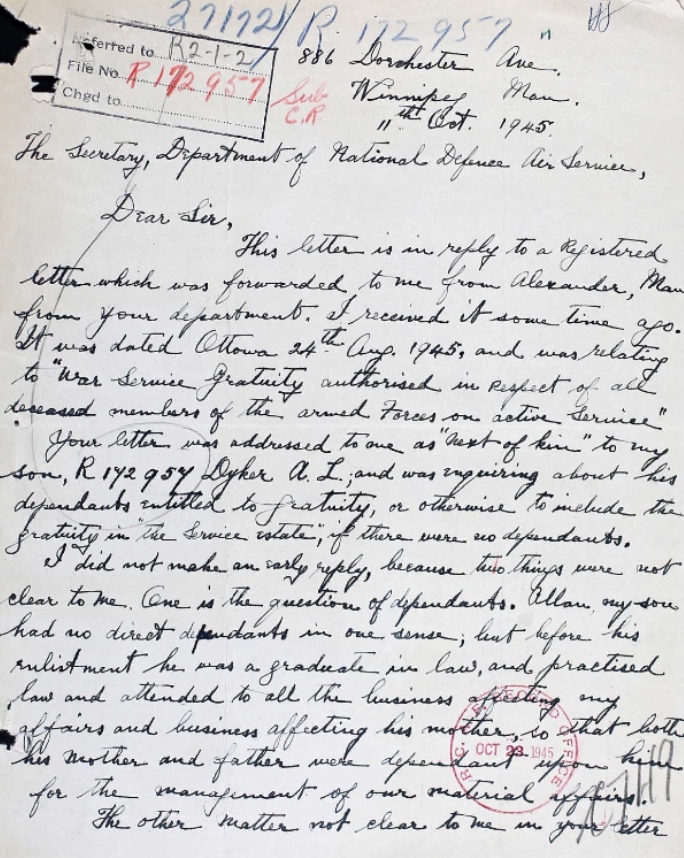 27172
R 172 957
Referred to R2-1-2
File No. R172957
Chgd to
Sub
C.R
886 Dorchester Ave.
Winnipeg Man.
11th Oct. 1945.
The Secretary, Department of National Defence Air Service,
Dear Sir,
This letter is in reply to a Registered
letter which was forwarded to me from Alexander, Man
from your department. I received it some time ago.
It was dated Ottowa 24th Aug. 1945, and was relating
to "War Service Gratuity authorised in respect of all
deceased members of the armed Forces on active Service"
Your letter was addressed to me as "Next of kin" to my
son, R 172957 Dyker A. L., and was enquiring about his
dependants entitled to gratuity, or otherwise to include the
gratuity in "the Service estate", if there were no dependants.
I did not make an early reply, because two things were not
clear to me. One is the question of dependants. Allan, my son
had no direct dependants in one sense; but before his
enlistment he was a graduate in law, and practised
law and attended to all the business affecting my
affairs and business affecting his mother, so that both
his mother and father were dependant upon him
for the management of our material affairs.
The other matter not clear to me in your letter
R.C. RECORD OFFICE
OCT 23 1945